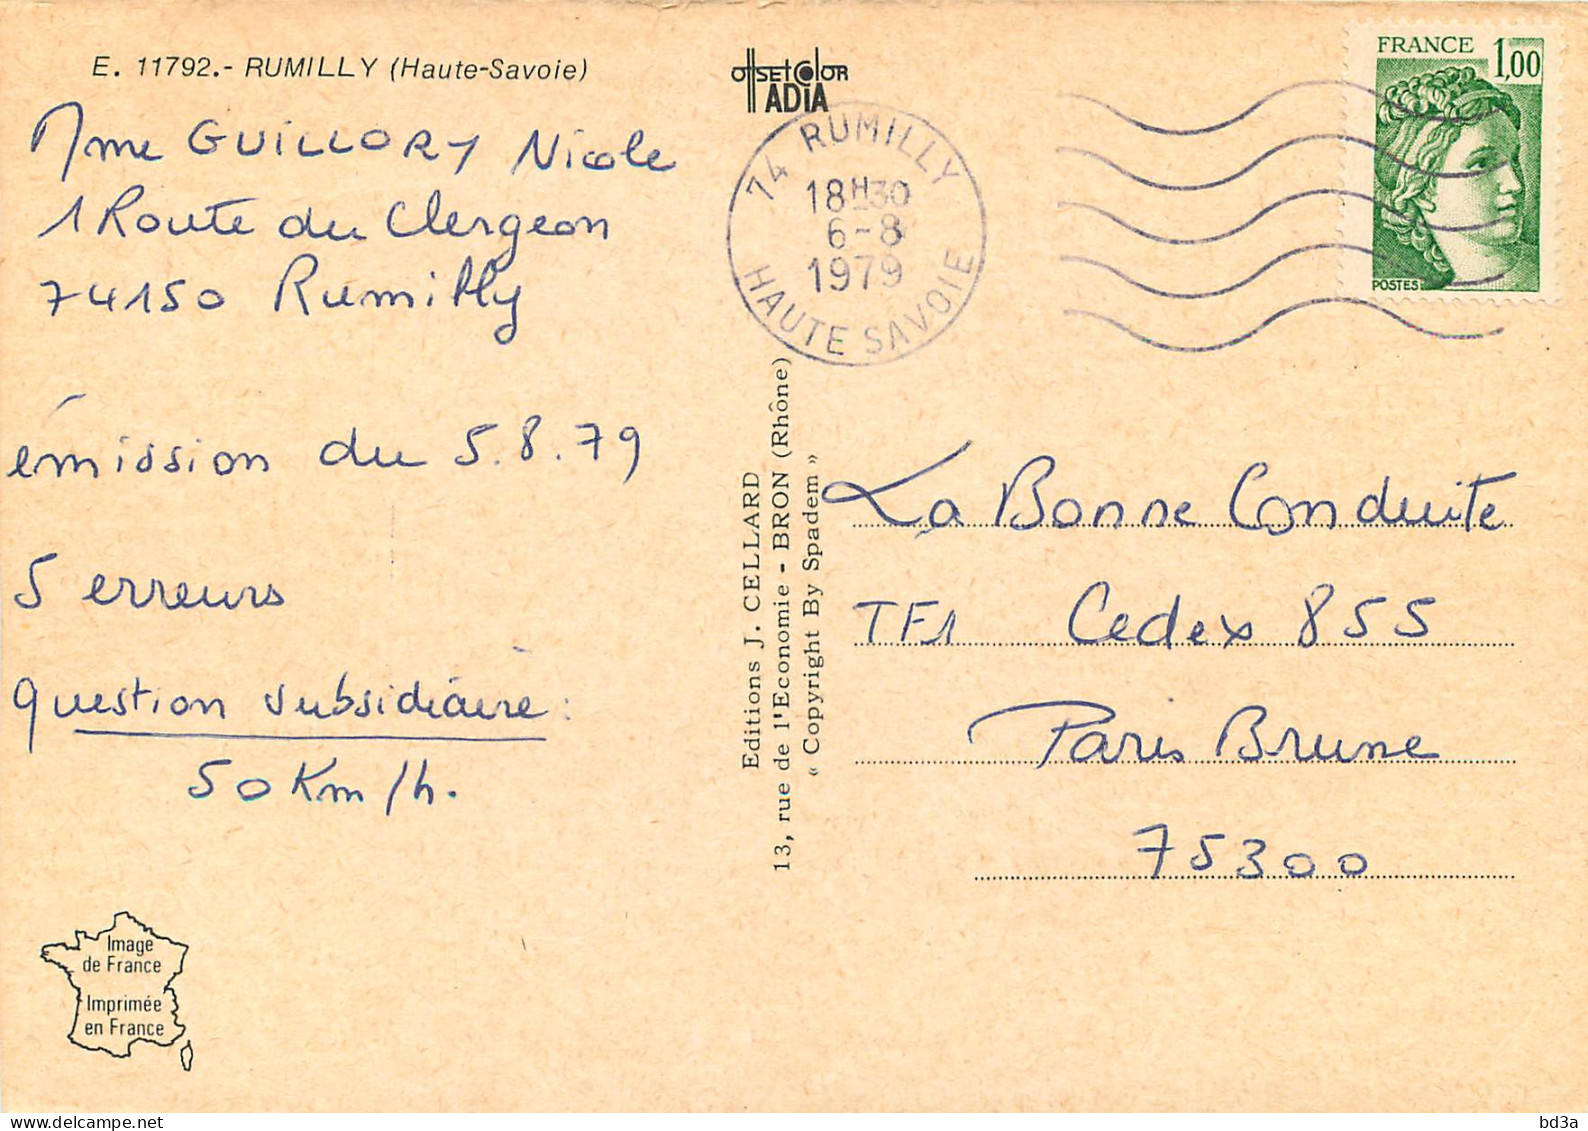 E. 11792.- RUMILLY (Haute-Savoie)
Mme GUILLORY Nicole
1 Route du Clergeon
74150 Rumilly
émission du 5.8.79
5 erreurs
question subsidiaire :
50 Km/h.
Image
de France
Imprimée
en France
OffSEt COlOR
ADIA
74 RUMILLY
18H30
6-8
1979
HAUTE SAVOIE
FRANCE 1,00
POSTES
Editions J. CELLARD
13, rue de l'Economie - BRON (Rhône)
« Copyright By Spadem »
La Bonne Conduite
TF1 Cedex 855
Paris Brune
75300
delcampe.net
bd3a